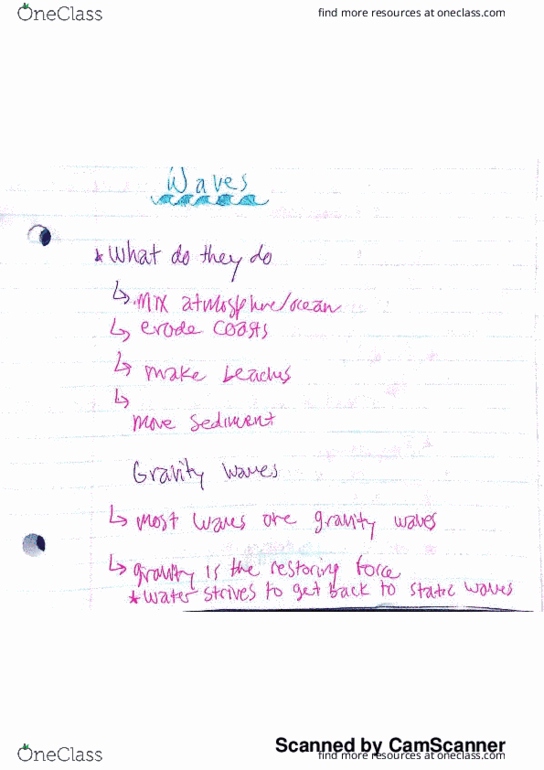 OneClass
find more resources at oneclass.com
Waves
* What do they do
↳ mix atmosphere/ocean
↳ erode coasts
↳ make beaches
↳
move sediment
Gravity waves
↳ most waves are gravity waves
↳ gravity is the restoring force
* water strives to get back to static waves
Scanned by CamScanner
OneClass
find more resources at oneclass.com